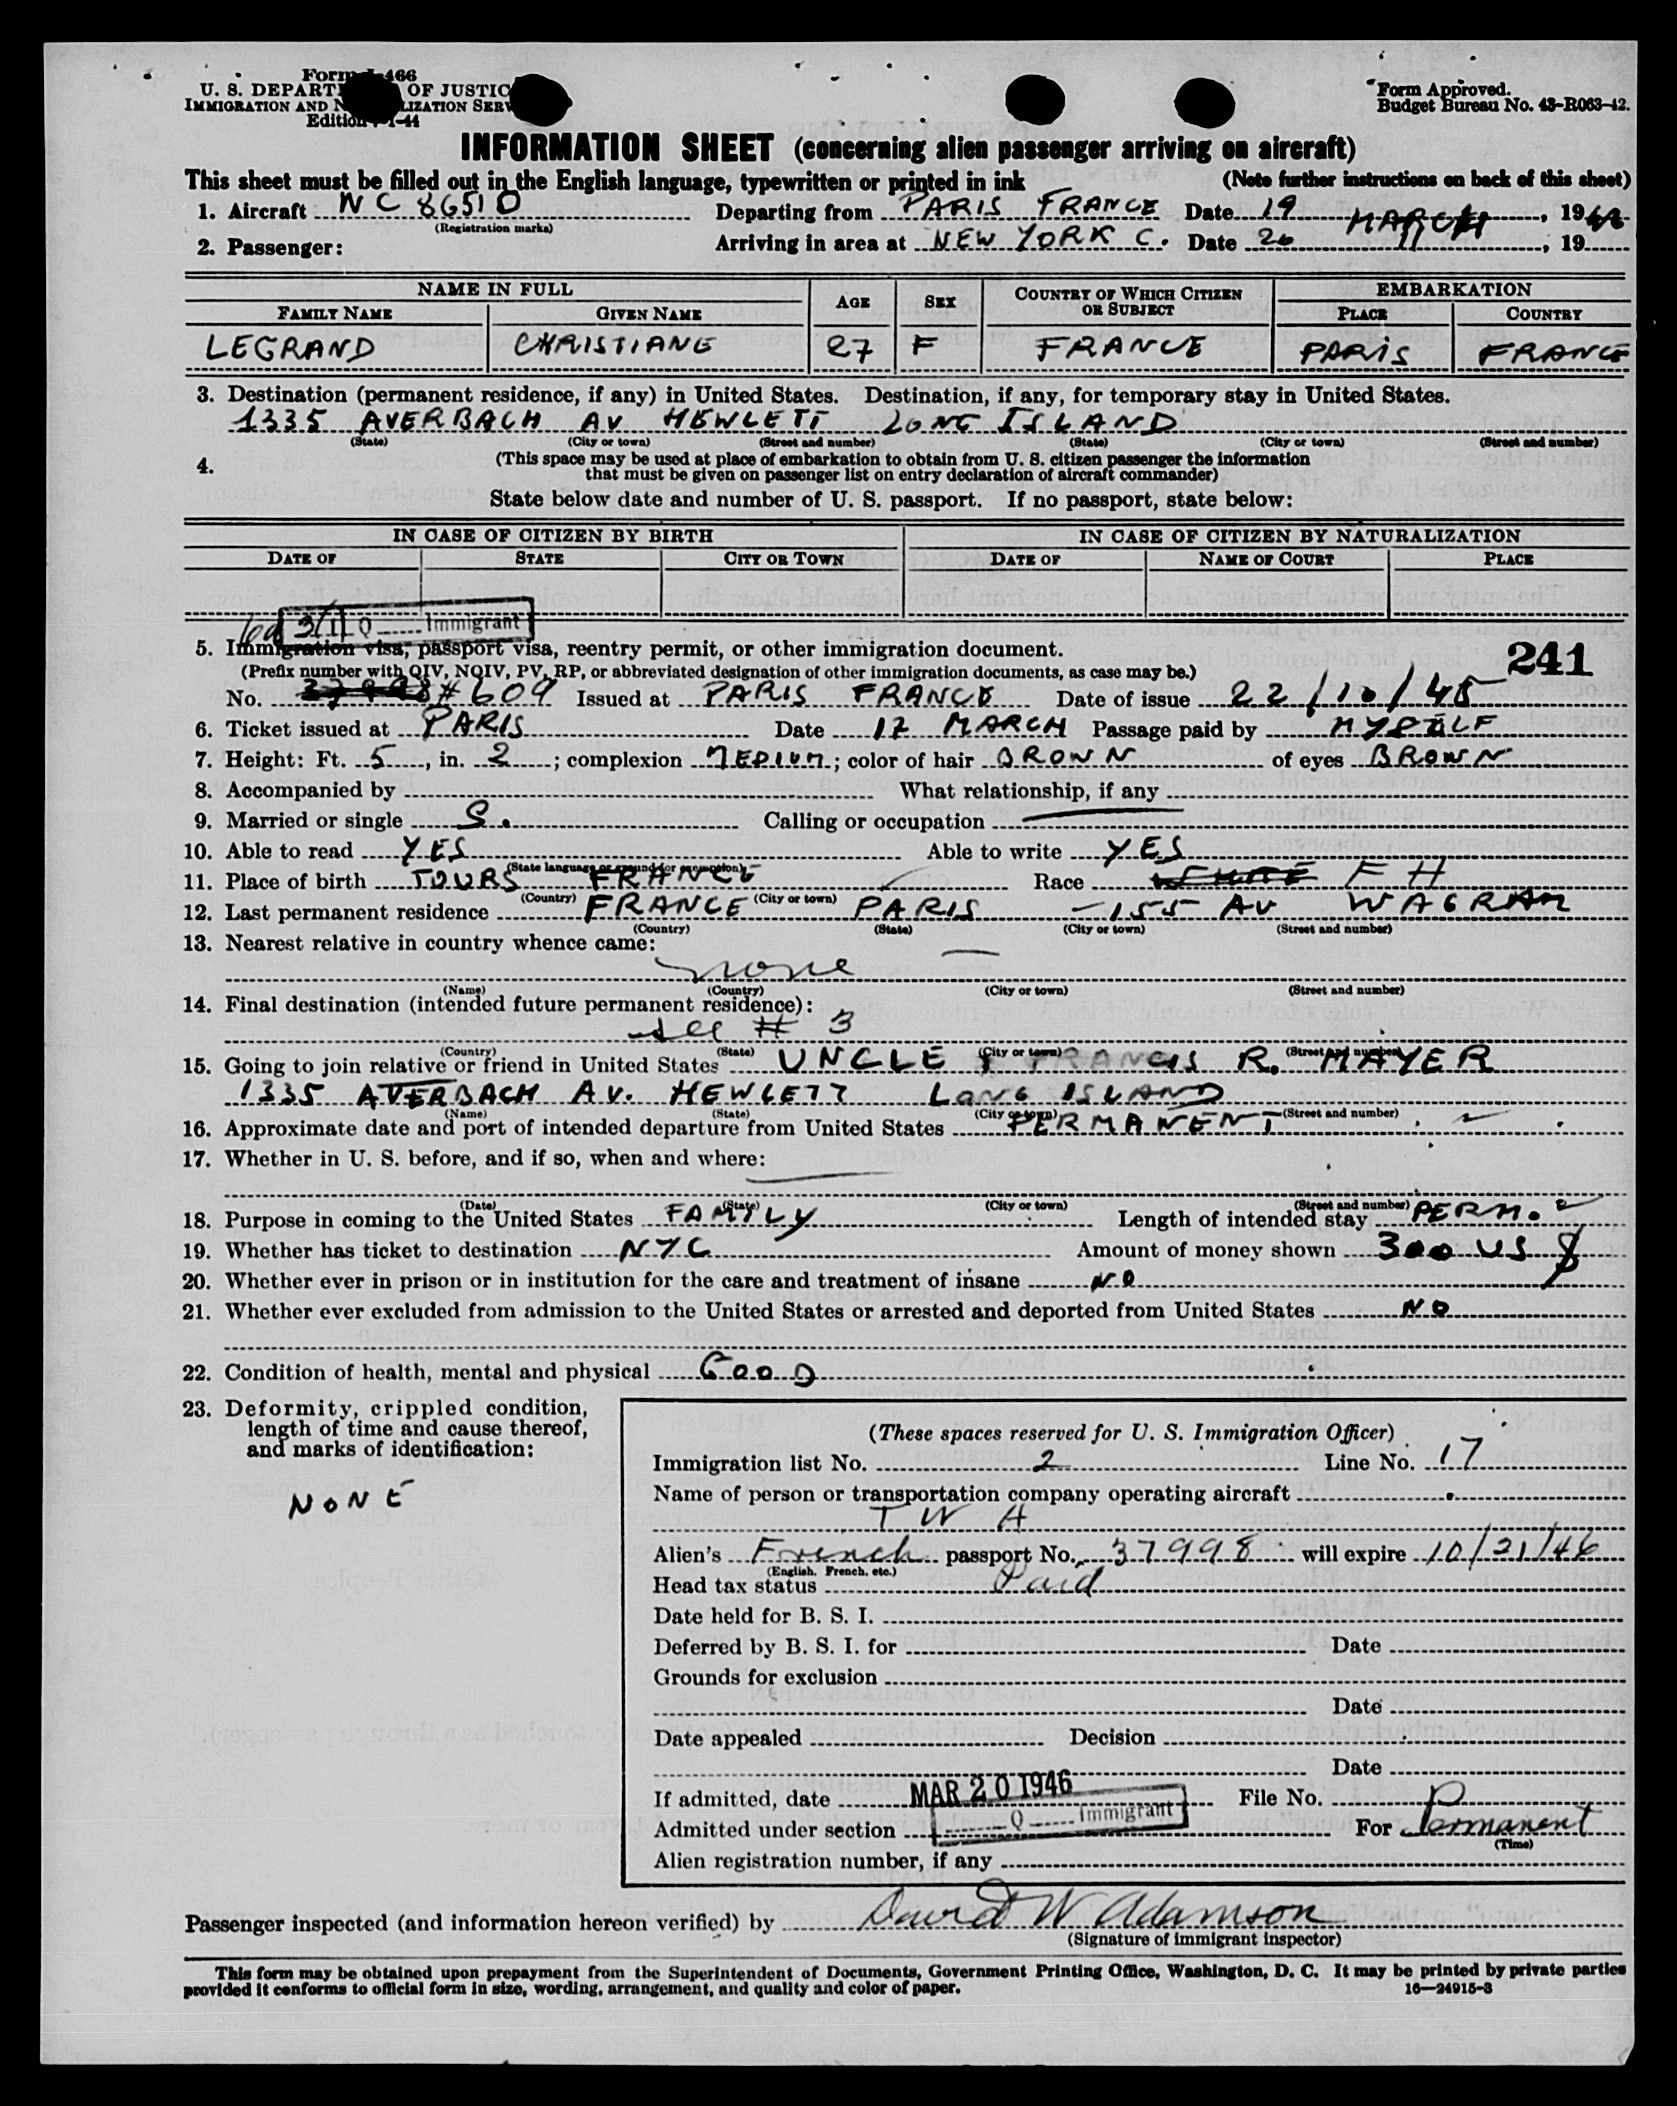 Form I-466
U. S. DEPARTMENT OF JUSTICE
IMMIGRATION AND NATURALIZATION SERVICE
Edition 1-44
Form Approved.
Budget Bureau No. 43-R063-42.
INFORMATION SHEET (concerning alien passenger arriving on aircraft)
This sheet must be filled out in the English language, typewritten or printed in ink (Note further instructions on back of this sheet)
1. Aircraft NC 86510 Departing from PARIS FRANCE Date 19 MARCH, 1946
(Registration marks)
2. Passenger: Arriving in area at NEW YORK C. Date 20 ", 19
NAME IN FULL AGE SEX COUNTRY OF WHICH CITIZEN OR SUBJECT EMBARKATION
FAMILY NAME GIVEN NAME PLACE COUNTRY
LEGRAND CHRISTIANE 27 F FRANCE PARIS FRANCE
3. Destination (permanent residence, if any) in United States. Destination, if any, for temporary stay in United States.
1335 AVERBACH AV HEWLETT LONG ISLAND
(State) (City or town) (Street and number) (State) (City or town) (Street and number)
4. (This space may be used at place of embarkation to obtain from U. S. citizen passenger the information
that must be given on passenger list on entry declaration of aircraft commander)
State below date and number of U. S. passport. If no passport, state below:
IN CASE OF CITIZEN BY BIRTH IN CASE OF CITIZEN BY NATURALIZATION
DATE OF STATE CITY OR TOWN DATE OF NAME OF COURT PLACE
Q Immigrant
5. Immigration visa, passport visa, reentry permit, or other immigration document.
241
(Prefix number with QIV, NQIV, PV, RP, or abbreviated designation of other immigration documents, as case may be.)
No. 37998 # 609 Issued at PARIS FRANCE Date of issue 22/10/45
6. Ticket issued at PARIS Date 17 MARCH Passage paid by MYSELF
7. Height: Ft. 5, in. 2; complexion MEDIUM; color of hair BROWN of eyes BROWN
8. Accompanied by What relationship, if any
9. Married or single S. Calling or occupation
10. Able to read YES Able to write YES
(State language or ground for exemption)
11. Place of birth TOURS FRANCE Race WHITE F H
(Country) (City or town)
12. Last permanent residence FRANCE PARIS - 155 AV WAGRAM
(Country) (State) (City or town) (Street and number)
13. Nearest relative in country whence came:
none
(Name) (Country) (City or town) (Street and number)
14. Final destination (intended future permanent residence):
see # 3
(Country) (State) (City or town) (Street and number)
15. Going to join relative or friend in United States UNCLE FRANCIS R. MAYER
1335 AVERBACH AV. HEWLETT LONG ISLAND
(Name) (State) (City or town) (Street and number)
16. Approximate date and port of intended departure from United States PERMANENT
17. Whether in U. S. before, and if so, when and where:
(Date) (State) (City or town) (Street and number)
18. Purpose in coming to the United States FAMILY Length of intended stay PERM.
19. Whether has ticket to destination NYC Amount of money shown 300 US $
20. Whether ever in prison or in institution for the care and treatment of insane NO
21. Whether ever excluded from admission to the United States or arrested and deported from United States NO
22. Condition of health, mental and physical GOOD
23. Deformity, crippled condition,
length of time and cause thereof,
and marks of identification:
NONE
(These spaces reserved for U. S. Immigration Officer)
Immigration list No. 2 Line No. 17
Name of person or transportation company operating aircraft
T W A
Alien's French passport No. 37998 will expire 10/21/46
(English, French, etc.)
Head tax status Paid
Date held for B. S. I.
Deferred by B. S. I. for Date
Grounds for exclusion
Date
Date appealed Decision
Date
If admitted, date MAR 20 1946 File No.
Admitted under section Q Immigrant For Permanent
(Time)
Alien registration number, if any
Passenger inspected (and information hereon verified) by David W Adamson
(Signature of immigrant inspector)
This form may be obtained upon prepayment from the Superintendent of Documents, Government Printing Office, Washington, D. C. It may be printed by private parties
provided it conforms to official form in size, wording, arrangement, and quality and color of paper.
16—24915-3